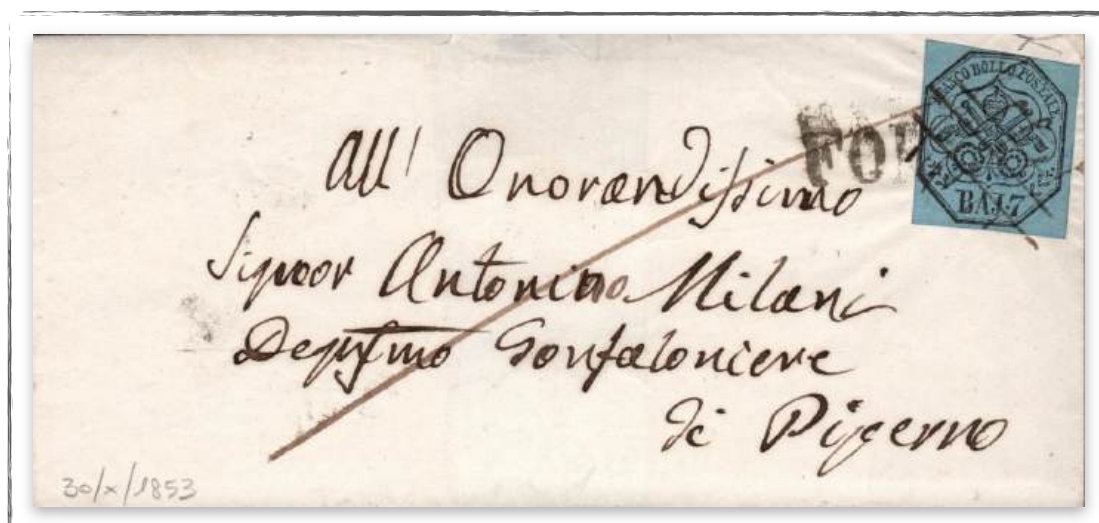 FRANCO BOLLO POSTALE
BAJ. 7
FO
All' Onorandissimo
Signor Antonino Milani
Degnssmo Gonfaloniere
di Piperno
30/X/1853